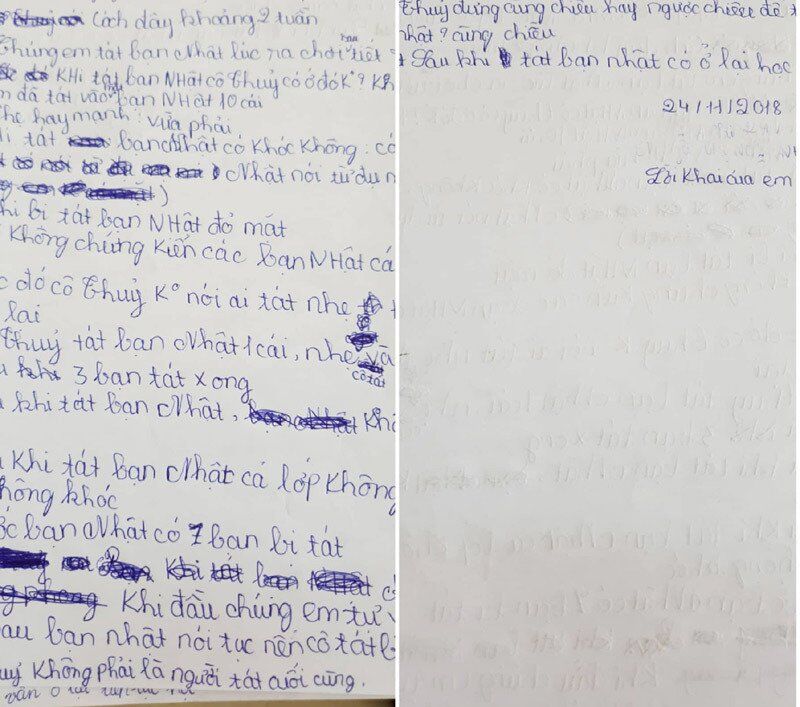 Cách đây khoảng 2 tuần
Chúng em tát bạn Nhật lúc ra chơi tiết
Khi tát bạn NHật cô Thuỷ có ở đó K°? Kh
m đã tát vào bạn NHật 10 cái
hẹ hay mạnh: vừa phải
i tát bạn Nhật có khóc không: có
Nhật nói từ dụ n
hi bị tát bạn NHật đỏ mắt
không chứng kiến các bạn NHật cá
c đó cô Thuỷ K° nói ai tát nhẹ t
lại
Thuỷ tát bạn Nhật 1 cái, nhẹ, và
cô tát
3 bạn tát xong
khi tát bạn Nhật, khi
Khi tát bạn Nhật cả lớp không
hông khóc
ớc bạn Nhật có 7 bạn bị tát
Khi tát bạn
Khi đầu chúng em tự v
au bạn nhật nói tục nên cô tát b
uỷ không phải là người tát cuối cùng.
Thuỷ đứng cùng chiều hay ngược chiều để t
nhật? cùng chiều
Sau khi tát bạn nhật có ở lại học
24/11/2018
Lời khai của em